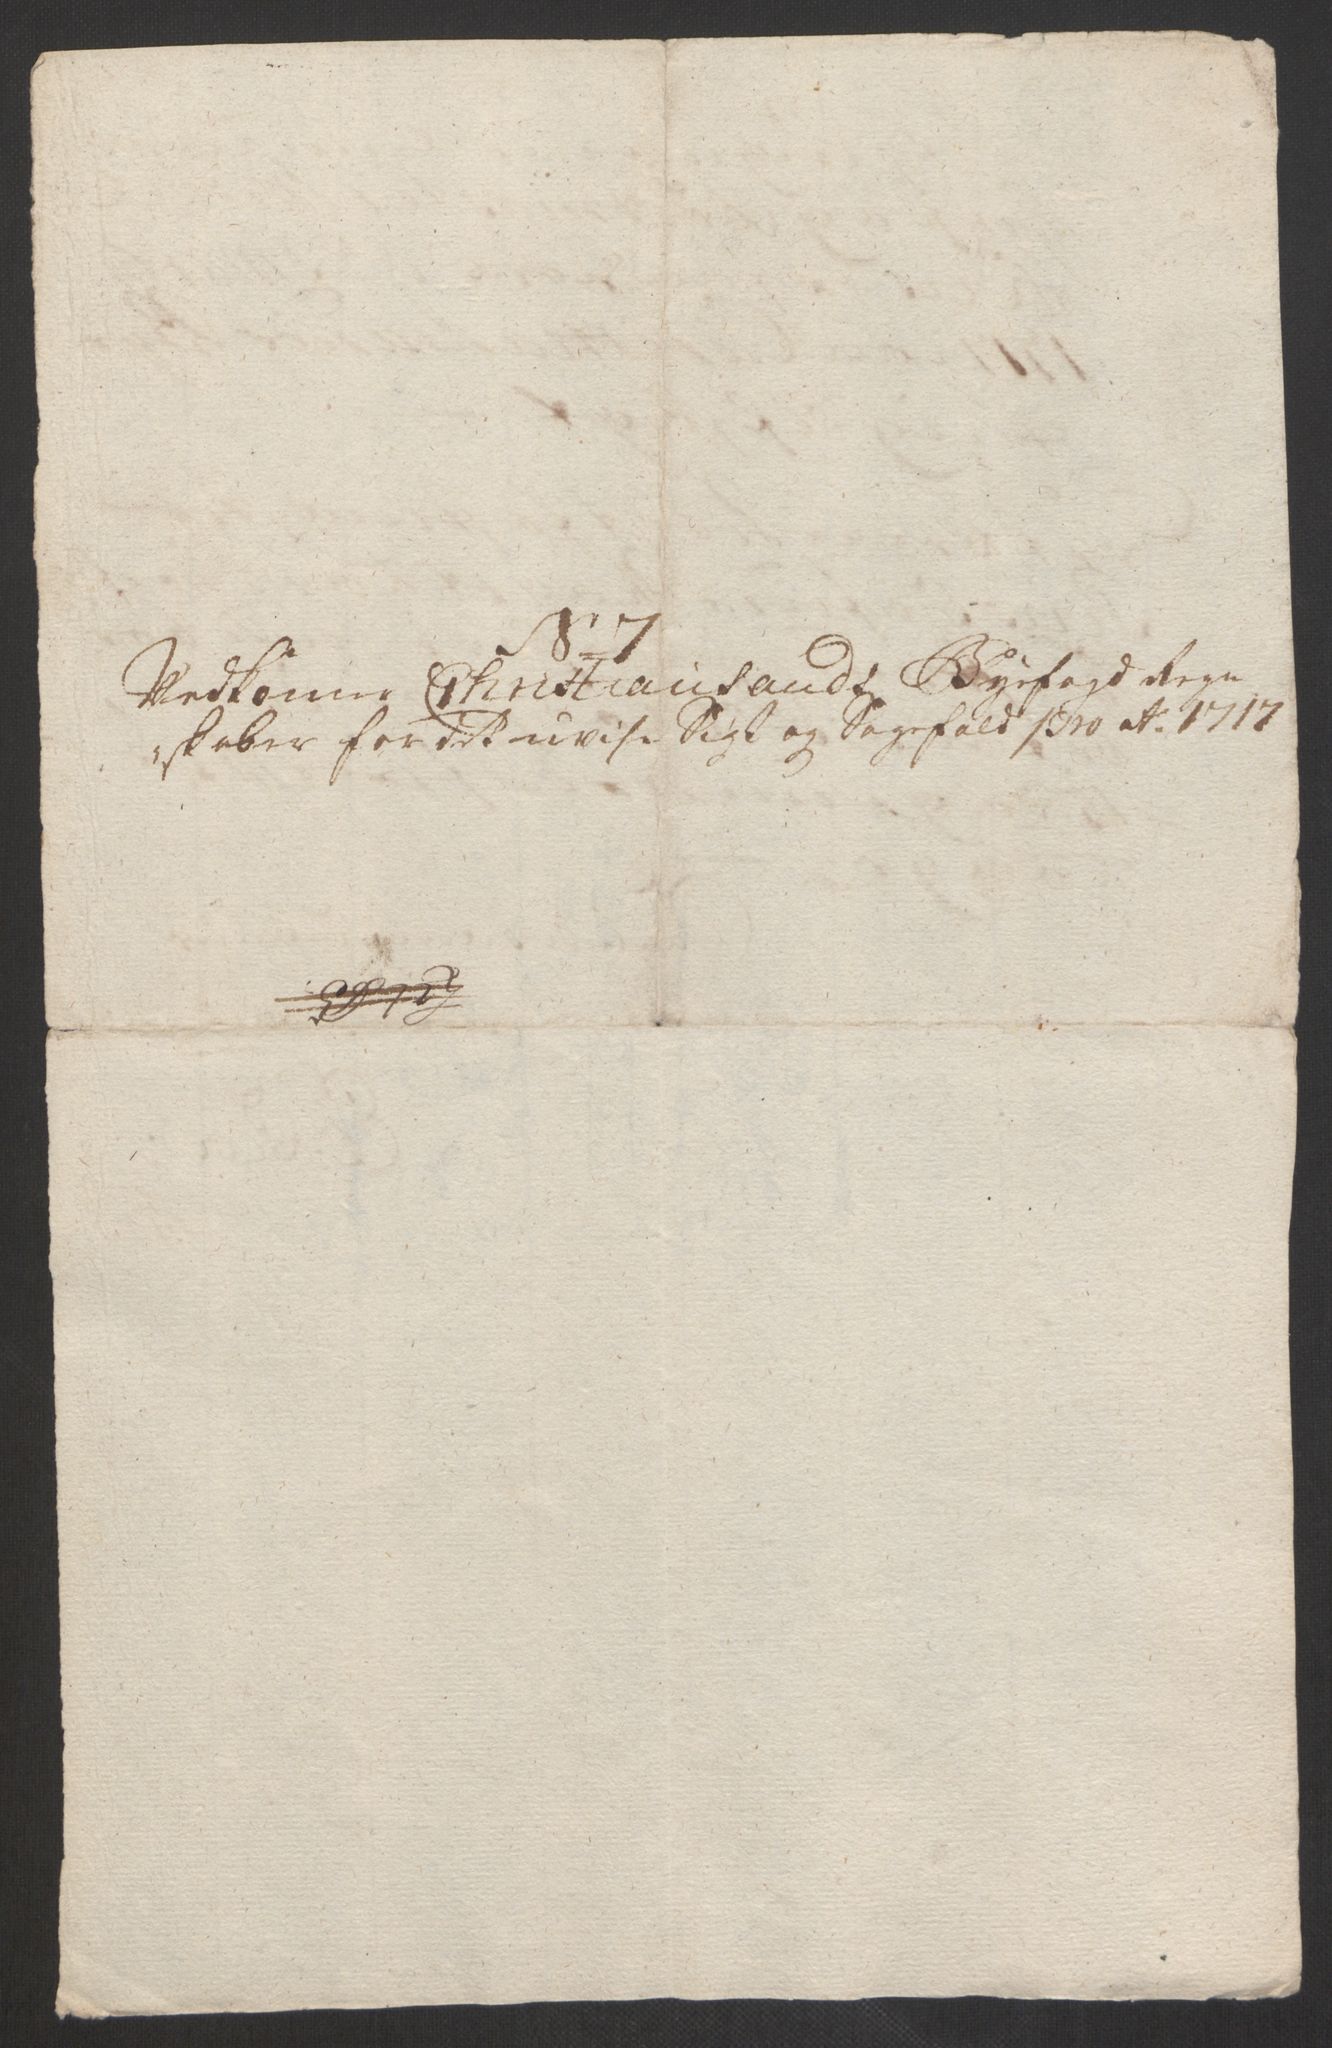 N: 7
Vedkommer Christiansandts Byefogd Regn
skaber for det uvise Sigt og Sagefald pro Ao. 1717